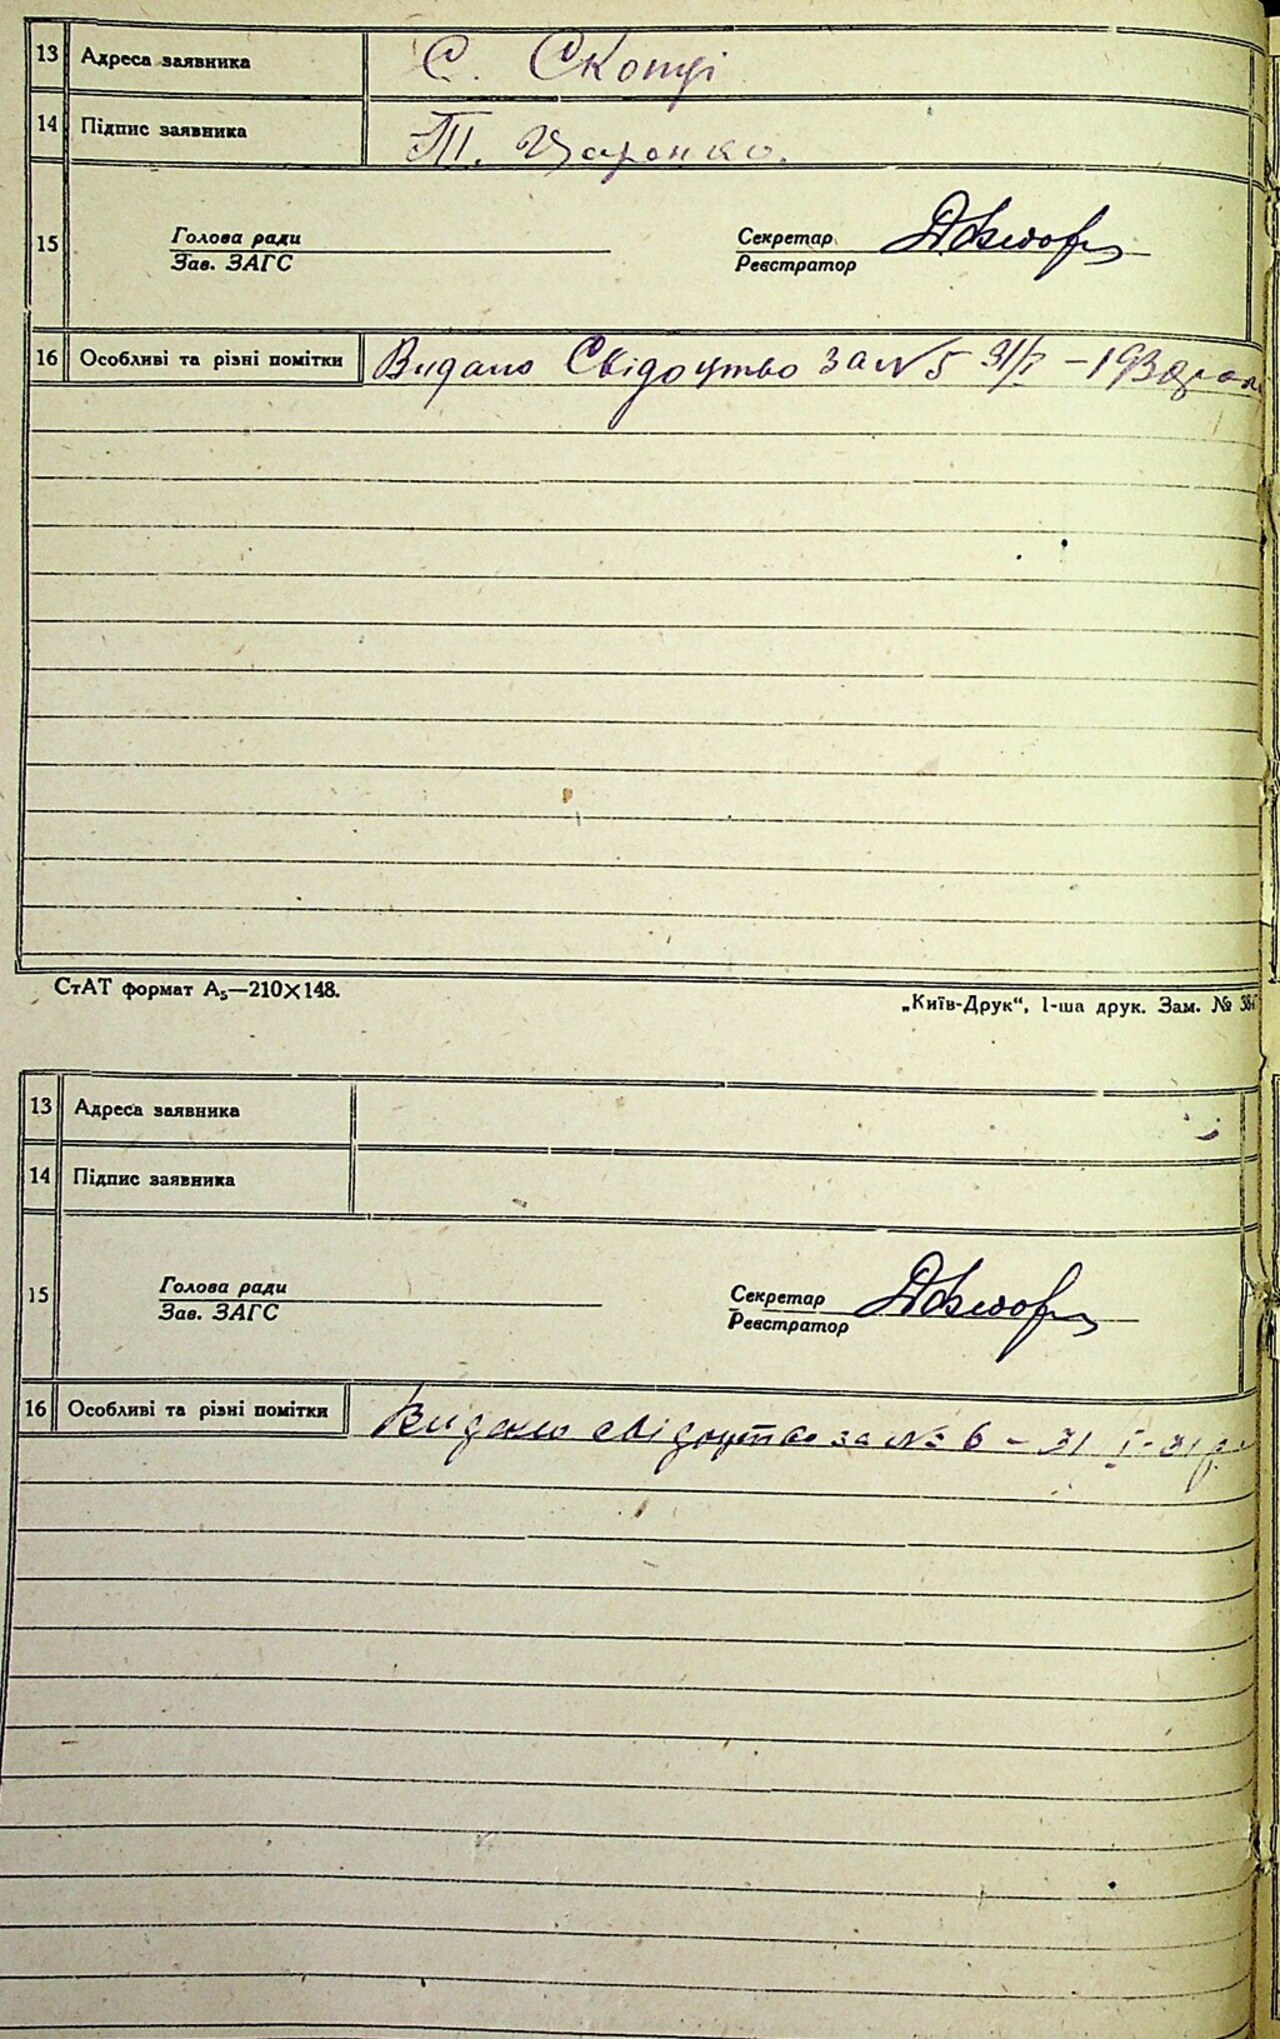 13 Адреса заявника С. Скопці
14 Підпис заявника Т. Царенко.
15 Голова ради Секретар
Зав. ЗАГС Реєстратор
16 Особливі та різні помітки Видано Свідоцтво за № 5 31/I –
СтАТ формат А₅—210×148.
„Київ-Друк“, 1-ша друк. Зам. №
13 Адреса заявника
14 Підпис заявника
15 Голова ради Секретар
Зав. ЗАГС Реєстратор
16 Особливі та різні помітки Видано свідоцтво за № 6 – 31 I-